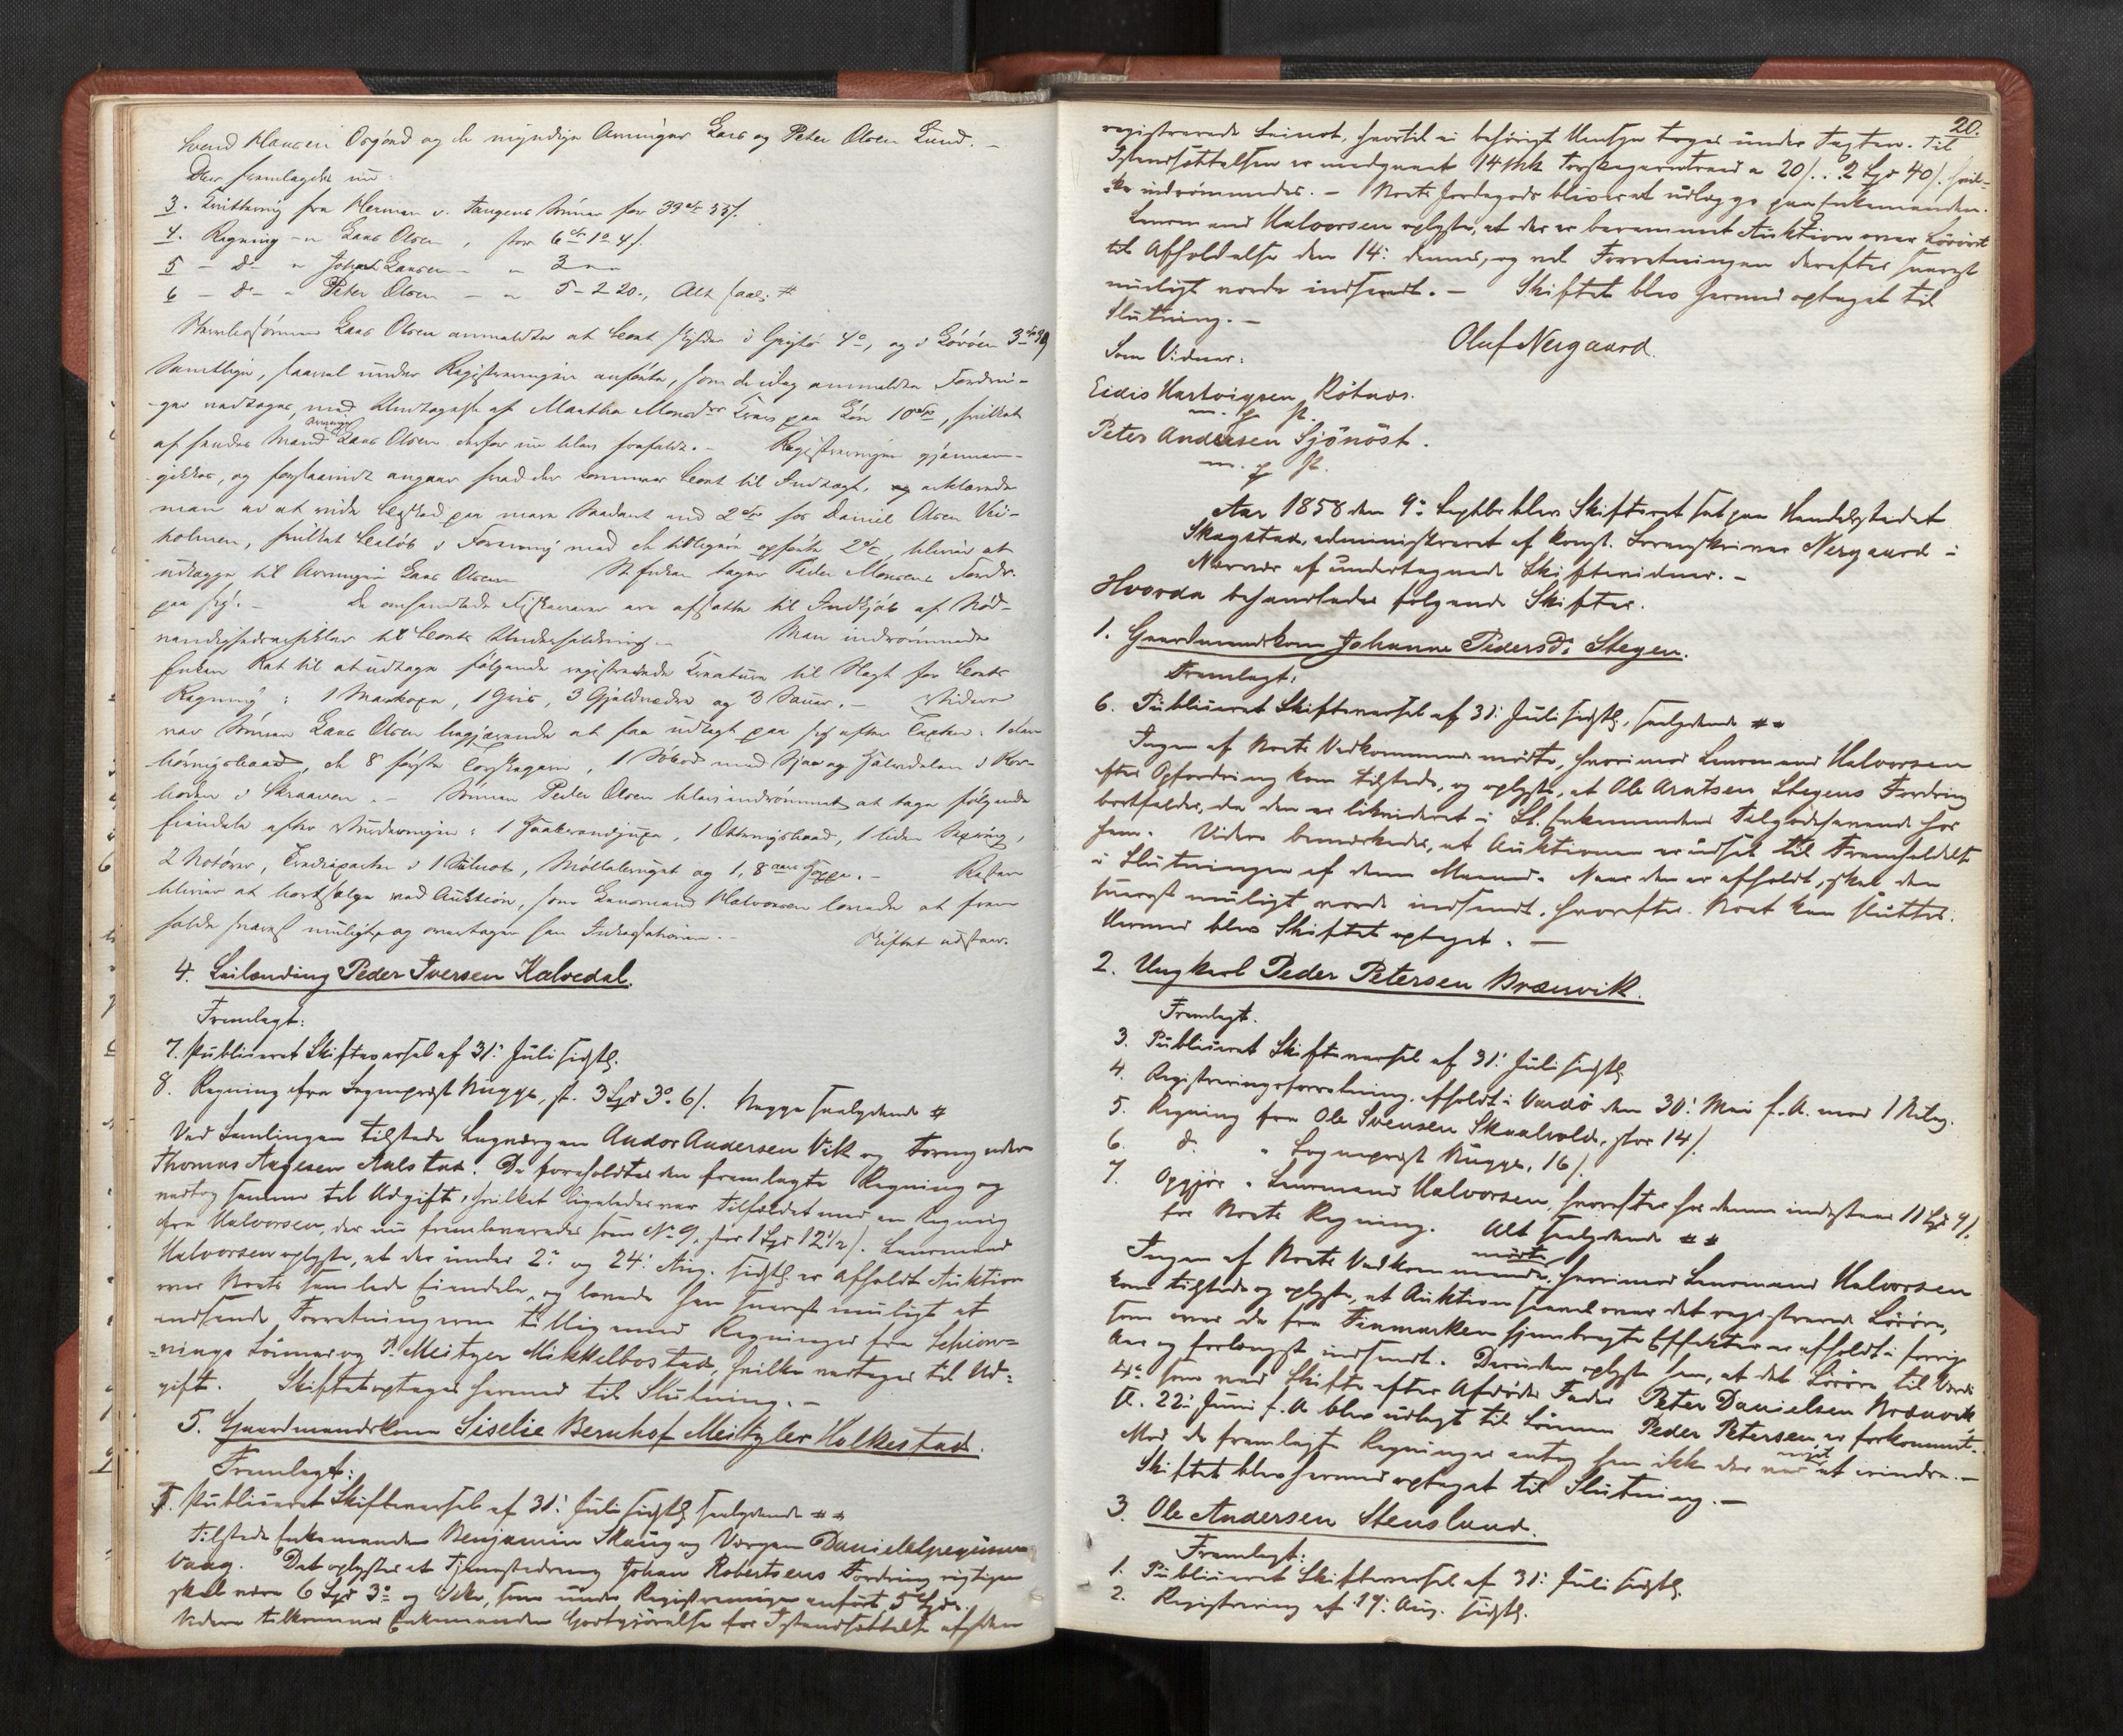 Svend Hansen Osgjord og de myndige Arvinger Lars og Peter Olsen Lund. –
Der fremlagdes nu:
3. Qvittering fra Herman v. Tangens Sønner for 39 33/.
4. Regning – Lars Olsen, stor 6 1 4/.
5 – d – " Johan Larsen – " 3 – –
6 – d – " Peter Olsen – " 5 – 2 20., Alt saal: #
Lars Olsen anmeldte at Boet skylder i 4, og i 3
Samtlige, saavel under Registreringen anførte, som de idag anmeldte Fordrin-
ger vedtoges, med Undtagelse af Martha Monsdr Krav paa Løn 10, hvilket
af hendes Mand Arvingen Lars Olsen derfor nu blev frafaldt. – Registreringen gjennem-
gikkes, og forsaavidt angaar hvad der kommer Boet til Indtægt, erklærede
man av at vide Beskeed paa mere Saadant end 2 hos Daniel Olsen Vei-
holmen, hvilket Beløb i Forening med de tidligere opførte 2, bliver at
udlægge til Arvingen Lars Olsen. Enken tager Peder Monsens Fordr.
paa sig. – De omhandlede Fiskevarer ere afsatte til Indkjøb af Nød-
vendighedsartikler til Boets Underholdning. – Man indrømmede
Enken Ret til at udtage følgende registrerede Kreature til Slagt for Boets
Regning: 1 , 1 Gris, 3 Gjeldvædre og 3 Sauer. – Videre
var Sønnen Lars Olsen begjærende at faa udlagt paa sig efter Taxten: 1
børingsbaad, de 8 første Torskegarn, 1 med og i
boden i Skraaven. – Sønnen Peder Olsen blev indrømmet at tage følgende
Eiendele efter Vurderingen: 1 , 1 Ottringsbaad, 1 liden Sexring,
2 , Trediparten i 1 , Møllebruget og 1, 8 . – Resten
bliver at bortsælge ved Auktion, som Lensmand Halvorsen lovede at frem-
holde snarest muligt og overtager han Inkassationen. – Skiftet udstaar.
4. Leilænding Peder Iversen Kalvedal.
Fremlagt:
7. Publiceret Skiftevarsel af 31: Juli sidstl.
8. Regning fra Sogneprest Rugge, st. 3 Spd 3 6/. Begge saalydende #
Ved Samlingen tilstede Lagværgen Andor Andersen Vik og Formynder
Thomas Aagesen Aalstad. De foreholdtes den fremlagte Regning og
vedtog samme til Udgift, hvilket ligeledes var Tilfældet med en Regning
fra Halvorsen, der nu frembevaredes som No 9, stor 1 Spd 12 1/2/. Lensmand
Halvorsen oplyste, at der under 2: og 24: Aug. sidstl. er afholdt Auktion
over Boets samlede Eiendele, og lovede han snarest muligt at
indsende Forretningerne tilligemed Regninger fra Schjøn-
nings Sønner og P. Meitzer Mikkelbostad, hvilke vedtoges til Ud-
gift. Skiftet optoges hermed til Slutning. –
5. Gaardmandskone Siselie Bernhof Meitzler Holkestad.
Fremlagt:
7. Publiceret Skiftevarsel af 31: Juli sidstl saalydende # #
Tilstede Enkemanden Benjamin Skaug og Værgen Daniel
Vaag. Det oplystes at Tjenestedreng Johan Robertsens Fordring rigtigen
skal være 6 Spd 3 og ikke, som under Registreringen anført 5 Spd.
Videre tilkommer Enkemanden Godtgjørelse for Istandsættelse af den
20.
registrerede Seinot, hvortil ei behørigt Hensyn toges under Taxten. Til
Istandsættelsen er medgaaet 14 a 20/. : 2 Spd 40/. hvil-
ke indrømmedes. – Boets Jordegods bliver at udlægge paa Enkemanden.
Lensmand Halvorsen oplyste, at der er berammet Auktion over Løsøret
til Afholdelse den 14: dennes, og vil Forretningen derefter snarest
muligt vorde indsendt. – Skiftet blev hermed optaget til
Slutning. –
Oluf Nergaard.
Som Vidner:
Eidis Hartvigsen Rötnes.
m. f. P.
Peter Andersen Sjönöst.
m. f. P.
Aar 1858 den 9: Septbr blev Skifteret sat paa Handelsstedet
Skagstad, administreret af kongl. Sorenskriver Nergaard i
Nærvær af undertegnede Skiftevidner. –
Hvorda behandledes følgende Skifter.
1. Gaardmandskone Johanne Pedersd: Stegen.
Fremlagt:
6. Publiceret Skiftevarsel af 31: Juli sidstl, saalydende # #
Ingen af Boets Vedkommende mødte, hvorimod Lensmand Halvorsen
efter Opfordring kom tilstede, og oplyste, at Ole Arntsen Stegens Fordring
bortfalder, da den er likvideret i St. Enkemandens Tilgodehavende hos
ham. Videre bemærkedes, at Auktionen er udsat til Fremholdelse
i Slutningen af denne Maaned. Naar den er afholdt, skal den
snarest muligt vorde indsendt, hvorefter Boet kan sluttes.
Hermed blev Skiftet optaget. –
2. Ungkarl Peder Petersen Brænvik.
Fremlagt.
3. Publiceret Skiftevarsel af 31: Juli sidstl
4. Registreringsforretning, afholdt i Vardö den 30: Mai f. A. med 1 Bilag.
5. Regning fra Ole Svensen Skaalvold, stor 14/.
6. d: " Sogneprest Rugge, 16/.
7. Opgjør " Lensmand Halvorsen, hvorefter hos denne indestaar 11 Spd 4/.
for Boets Regning. Alt saalydende # #
Ingen af Boets Vedkommende mødte, hvorimod Lensmand Halvorsen
kom tilstede og oplyste, at Auktion saavel over det registrerede Løsøre,
som over de fra Finmarken hjembragte Effekter er afholdt i forrige
Aar og forlængst indsendt. Desuden oplyste han, at det Løsøre til Værdi
4 som ved Skifte efter Afdødes Fader Peter Danielsen Brænvik
d. 22: Juni f. A. blev udlagt til Sønnen Peder Petersen er forkommet.
Mod de fremlagte Regninger antog han ikke der var noget at erindre. –
Skiftet blev hermed optaget til Slutning. –
3. Ole Andersen Stensland.
Fremlagt:
1. Publiceret Skiftevarsel af 31: Juli sidstl.
2. Registrering af 14: Aug. sidstl.